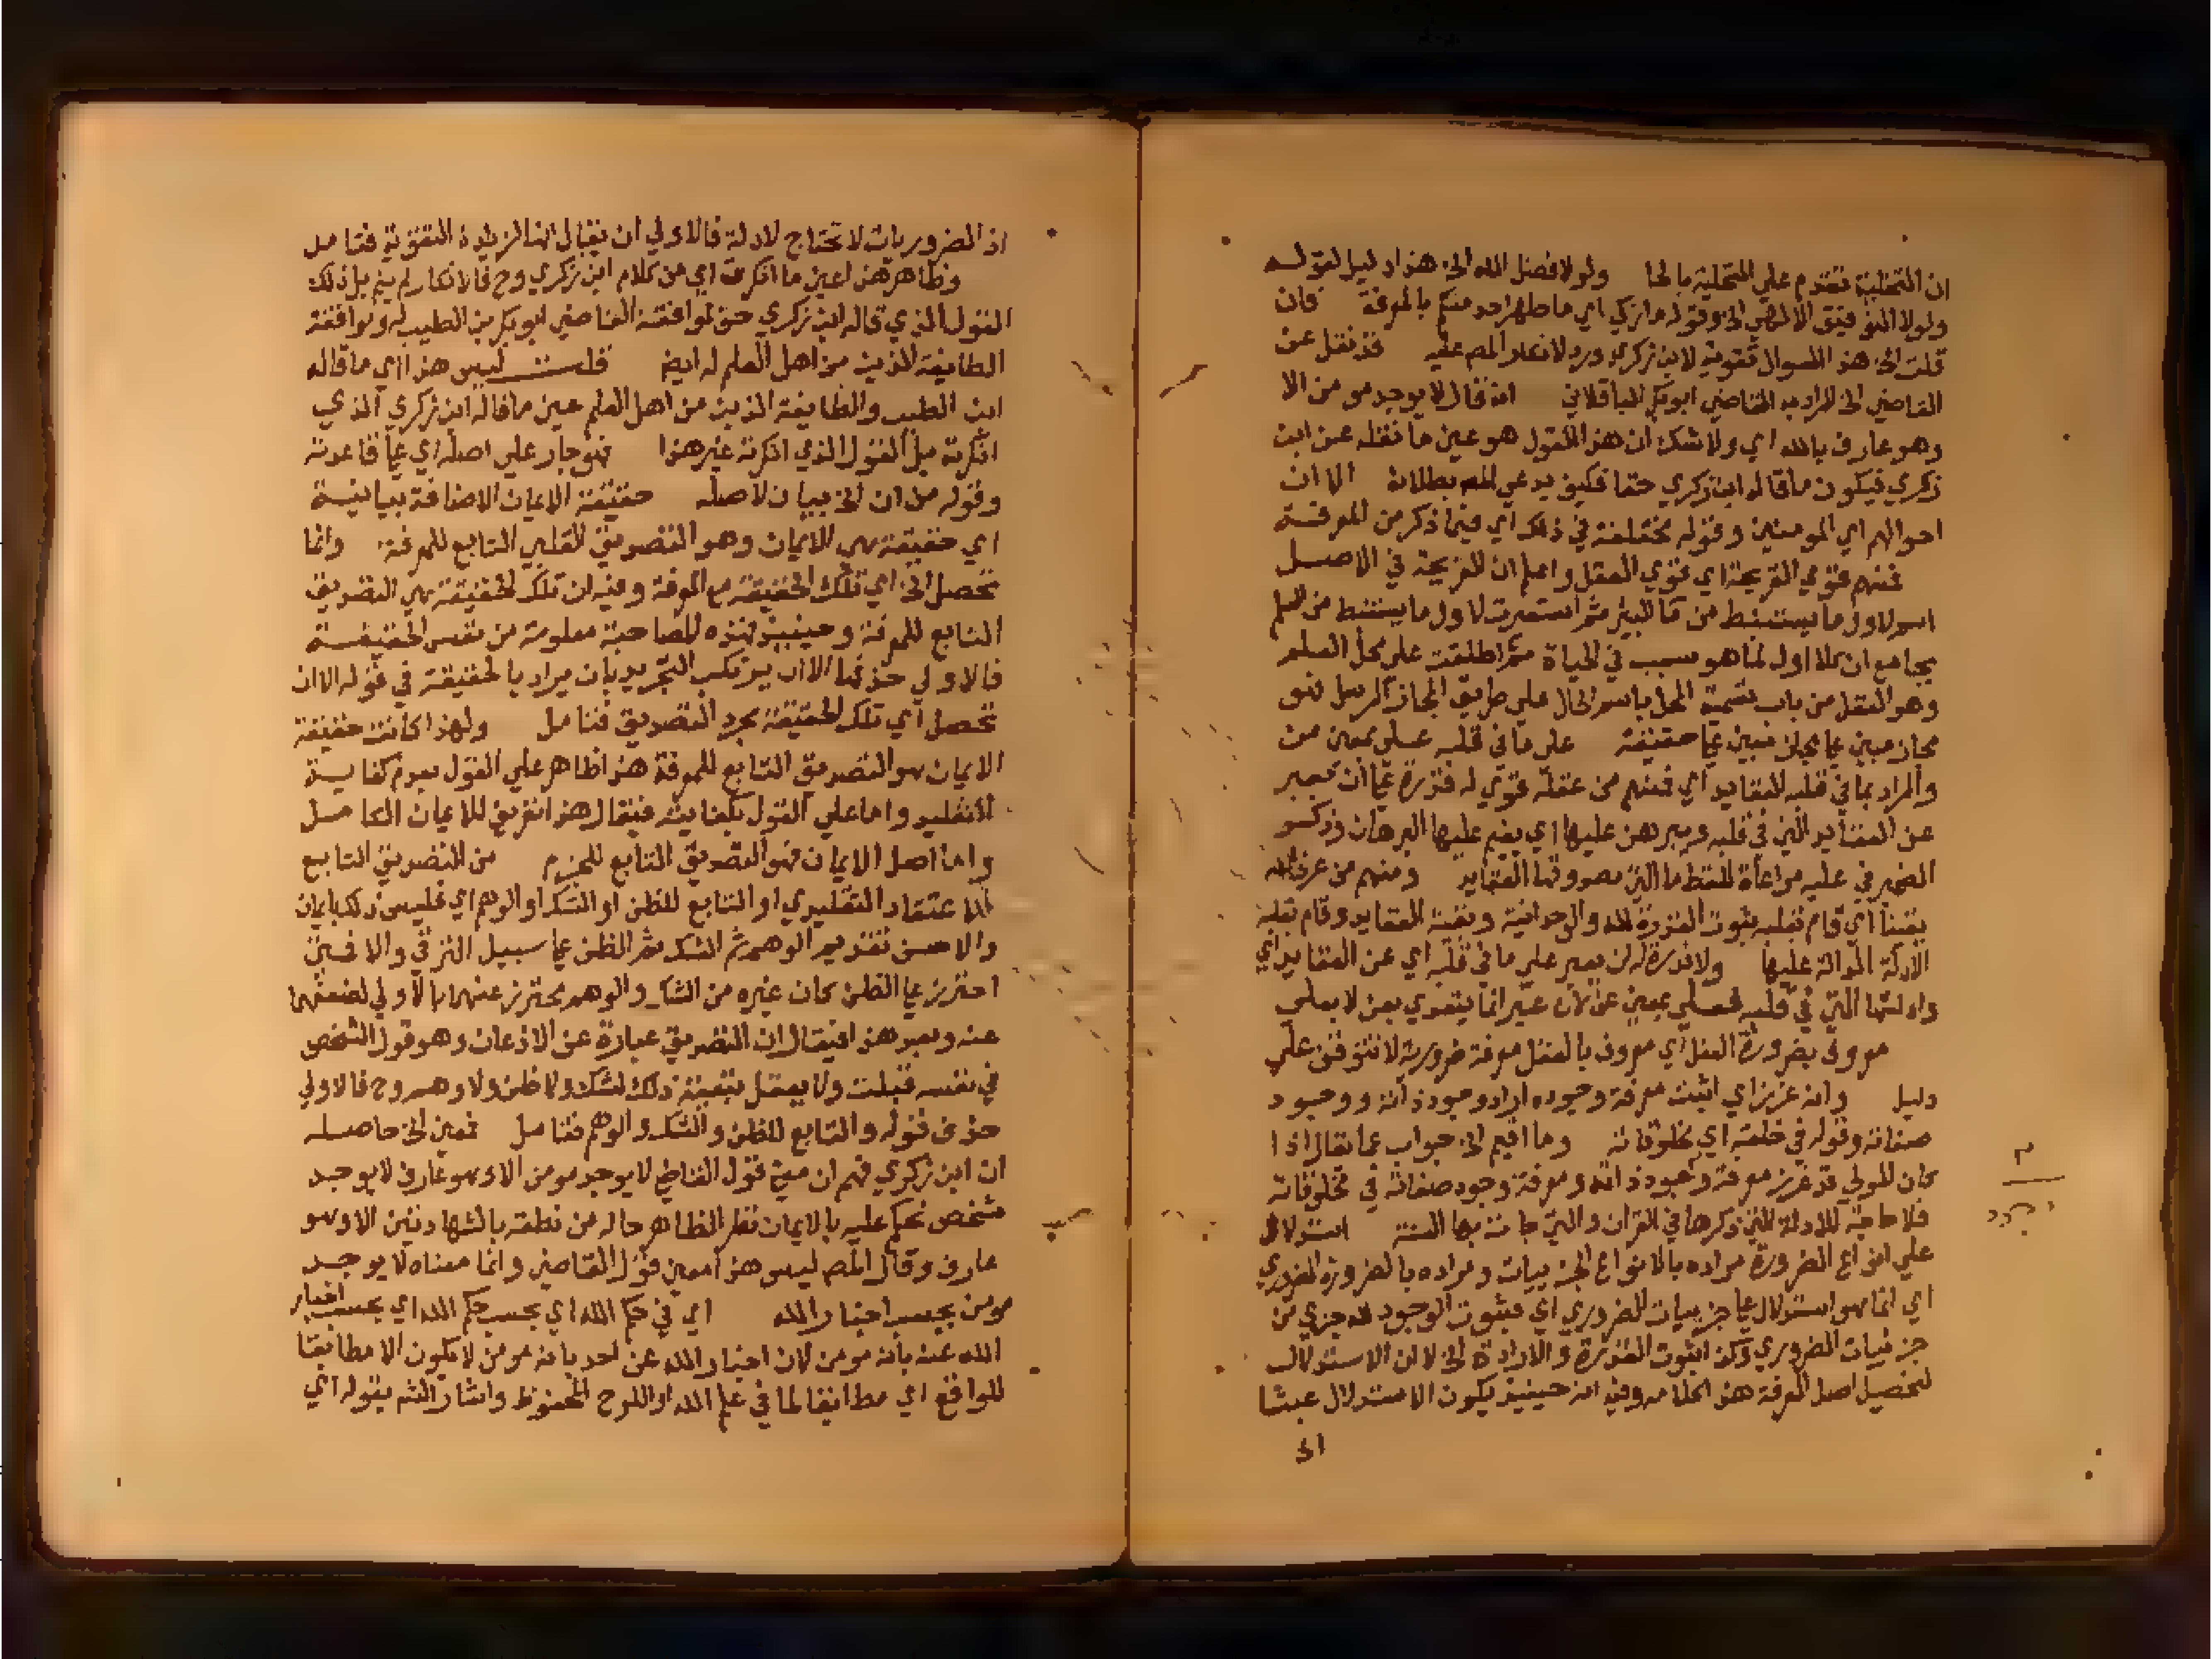 ان التخلية تقدم علي التحلية بالحا ولولا فضل الله الخ هذا دليل لقوله
ولولا التوفيق الالهي الخ وقوله ما زكي اي ما طهر احد منكم بالمعرفة فان
قلت الخ هذا السوال تقوية لابن زكري ورد لانكار المص عليه قد نقل عن
القاضي الخ المراد به القاضي ابو بكر الباقلاني انه قال لا يوجد مومن الا
وهو عارف بالله اي ولا شك ان هذا القول هو عين ما نقله عن ابن
زكري فيكون ما قاله ابن زكري حقا فكيف يدعي المص بطلانه الا ان
احوالهم اي المومنين وقوله مختلفة في ذلك اي فيما ذكر من المعرفة
فمنهم قوي القريحة اي قوي العقل واعلم ان القريحة في الاصل
اسم لاول ما يستنبط من ماء البير ثم استعيرت لاول ما يستنبط من العلم
بجامع ان كلا اول لما هو سبب في الحياة ثم اطلقت علي محل العلم
وهو العقل من باب تسمية المحل باسم الحال علي طريق المجاز المرسل فهو
مجاز مبني علي مجاز مبني علي حقيقة علي ما في قلبه علي بمعني عن
والمراد بما في قلبه العقايد اي فمنهم من عقله قوي له قدرة علي ان يعبر
عن العقايد التي في قلبه ويبرهن عليها اي يقيم عليها البرهان وذكر
الضمير في عليه مراعاة للفظ ما التي مصدوقها العقايد ومنهم من عرف الله
يقينا اي قام بقلبه ثبوت القدرة لله والوحدانية وبقية العقايد وقام بقلبه
الادلة الدالة عليها ولا قدرة له ان يعبر علي ما في قلبه اي عن العقايد اي
وادلتها التي في قلبه فعلي بمعني عن لان عبر انما يتعدي بعن لا بعلي
معروف بضرورة العقل اي معروف بالعقل معرفة ضرورية لا تتوقف علي
دليل وانه غرز اي اثبت معرفة وجوده اراد وجود ذاته ووجود
صفاته وقوله في خلقه اي مخلوقاته وما اقيم الخ جواب عما يقال اذا
كان المولي قد غرز معرفة وجود ذاته ومعرفة وجود صفاته في مخلوقاته
فلا حاجة للادلة التي ذكرها في القران والتي جات بها السنة استدلال
علي انواع الضرورة مراده بالانواع الجزييات ومراده بالضرورة الضروري
اي انما هو استدلال علي جزييات الضروري اي فثبوت الوجود لله جزي من
جزئيات الضروري وكذا ثبوت القدرة والارادة الخ لا ان الاستدلال
لتحصيل اصل المعرفة هذا كلامه وفيه انه حينيذ يكون الاستدلال عبثا
اذ الضروريات لا تحتاج لادلة فالاولي ان يقال انها لزيادة التقوية فتامل
وظاهر هذا عين ما انكرت اي من كلام ابن زكري وح فالانكار لم يتم بل ذلك
القول الذي قاله ابن زكري حق لموافقته القاضي ابو بكر بن الطيب له وموافقة
الطايفة الذين من اهل العلم له ايض قلت ليس هذا اي ما قاله
ابن الطيب والطايفة الذين من اهل العلم عين ما قاله ابن زكري الذي
انكرته بل القول الذي انكرته غير هذا فهو جار علي اصله اي علي قاعدته
وقوله من ان الخ بيان لاصله حقيقة الايمان الاضافة بيانية
اي حقيقة هي الايمان وهو التصديق القلبي التابع للمعرفة وانما
تحصل الخ اي تلك الحقيقة مع المعرفة وفيه ان تلك الحقيقة هي التصديق
التابع للمعرفة وحينيذ فهذه المصاحبة معلومة من نفس الحقيقة
فالاولي حذفها الا ان يرتكب التجريد بان يراد بالحقيقة في قوله الا ان
تحصل اي تلك الحقيقة مجرد التصديق فتامل ولهذا كانت حقيقة
الايمان هو التصديق التابع للمعرفة هذا ظاهر علي القول بعدم كفاية
التقليد واما علي القول بكفايته فيقال هذا تعريف للايمان الكامل
واما اصل الايمان فهو التصديق التابع للجزم من التصديق التابع
للاعتقاد التقليدي او التابع للظن او الشك او الوهم اي فليس ذلك بايمان
والاحسن تقديم الوهم ثم الشك ثم الظن علي سبيل الترقي والا فحين
احترز علي الظن كان غيره من الشك والوهم محترز عنهما بالاولي لضعفهما
عنه وبعد هذا فيقال ان التصديق عبارة عن الاذعان وهو قول الشخص
في نفسه قبلت ولا يعقل تبعية ذلك لشك ولا ظن ولا وهم وح فالاولي
حذف قوله والتابع للظن والشك والوهم فتامل فمن الخ حاصله
ان ابن زكري فهم ان معني قول القاضي لا يوجد مومن الا وهو عارف لا يوجد
شخص نحكم عليه بالايمان نظر الظاهر حاله من نطقه بالشهادتين الا وهو
عارف وقال المص ليس هذا معني قول القاضي وانما معناه لا يوجد
مومن بحسب اخبار الله اي في حكم الله اي بحسب حكم الله اي بحسب اخبار
الله عنه بانه مومن لان اخبار الله عن احد بانه مومن لا يكون الا مطابقا
للواقع اي مطابقا لما في علم الله او اللوح المحفوظ واشار الشم بقوله اي